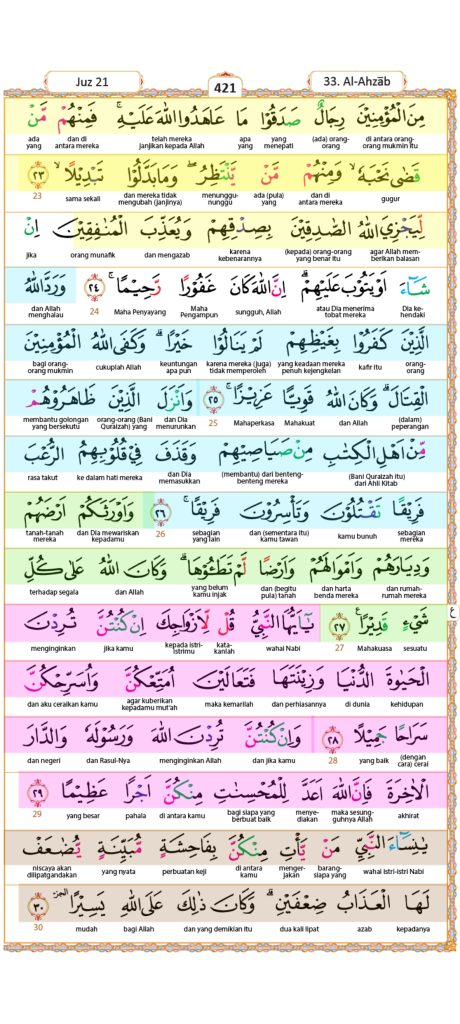 Juz 21
421
33. Al-Ahzāb
مِنَ الْمُؤْمِنِيْنَ رِجَالٌ صَدَقُوْا مَا عَاهَدُوا اللّٰهَ عَلَيْهِ ۚ فَمِنْهُمْ مَّنْ
di antara orang-orang mukmin itu (ada) orang-orang yang menepati apa yang telah mereka janjikan kepada Allah dan di antara mereka ada yang
قَضٰى نَحْبَهٗ ۙ وَمِنْهُمْ مَّنْ يَّنْتَظِرُ ۖ وَمَا بَدَّلُوْا تَبْدِيْلًا ۙ ٢٣
gugur dan di antara mereka ada (pula) yang menunggu-nunggu dan mereka tidak mengubah (janjinya) sama sekali 23
لِّيَجْزِيَ اللّٰهُ الصّٰدِقِيْنَ بِصِدْقِهِمْ وَيُعَذِّبَ الْمُنٰفِقِيْنَ اِنْ
agar Allah memberikan balasan (kepada) orang-orang yang benar itu karena kebenarannya dan mengazab orang munafik jika
شَاۤءَ اَوْ يَتُوْبَ عَلَيْهِمْ ۗ اِنَّ اللّٰهَ كَانَ غَفُوْرًا رَّحِيْمًا ۚ ٢٤ وَرَدَّ اللّٰهُ
Dia kehendaki atau Dia menerima tobat mereka sungguh, Allah Maha Pengampun Maha Penyayang 24 dan Allah menghalau
الَّذِيْنَ كَفَرُوْا بِغَيْظِهِمْ لَمْ يَنَالُوْا خَيْرًا ۗ وَكَفَى اللّٰهُ الْمُؤْمِنِيْنَ
orang-orang kafir itu yang keadaan mereka penuh kejengkelan karena mereka (juga) tidak memperoleh keuntungan apa pun cukuplah Allah bagi orang-orang mukmin
الْقِتَالَ ۗ وَكَانَ اللّٰهُ قَوِيًّا عَزِيْزًا ۚ ٢٥ وَاَنْزَلَ الَّذِيْنَ ظَاهَرُوْهُمْ
(dalam) peperangan dan Allah Mahakuat Mahaperkasa 25 dan Dia menurunkan orang-orang (Bani Quraizah) yang membantu golongan yang bersekutu
مِّنْ اَهْلِ الْكِتٰبِ مِنْ صَيَاصِيْهِمْ وَقَذَفَ فِيْ قُلُوْبِهِمُ الرُّعْبَ
(Bani Quraizah itu) dari Ahli Kitab (membantu) dari benteng-benteng mereka dan Dia memasukkan ke dalam hati mereka rasa takut
فَرِيْقًا تَقْتُلُوْنَ وَتَأْسِرُوْنَ فَرِيْقًا ۚ ٢٦ وَاَوْرَثَكُمْ اَرْضَهُمْ
sebagian mereka kamu bunuh dan (sementara itu) kamu tawan sebagian yang lain 26 dan Dia mewariskan kepadamu tanah-tanah mereka
وَدِيَارَهُمْ وَاَمْوَالَهُمْ وَاَرْضًا لَّمْ تَطَـُٔوْهَا ۗ وَكَانَ اللّٰهُ عَلٰى كُلِّ
dan rumah-rumah mereka dan harta benda mereka dan (begitu pula) tanah yang belum kamu injak dan Allah terhadap segala
شَيْءٍ قَدِيْرًا ࣖ ٢٧ يٰٓاَيُّهَا النَّبِيُّ قُلْ لِّاَزْوَاجِكَ اِنْ كُنْتُنَّ تُرِدْنَ ع
sesuatu Mahakuasa 27 wahai Nabi katakanlah kepada istri-istrimu jika kamu menginginkan
الْحَيٰوةَ الدُّنْيَا وَزِيْنَتَهَا فَتَعَالَيْنَ اُمَتِّعْكُنَّ وَاُسَرِّحْكُنَّ
kehidupan di dunia dan perhiasannya maka kemarilah agar kuberikan kepadamu mut'ah dan aku ceraikan kamu
سَرَاحًا جَمِيْلًا ٢٨ وَاِنْ كُنْتُنَّ تُرِدْنَ اللّٰهَ وَرَسُوْلَهٗ وَالدَّارَ
(dengan cara) cerai yang baik 28 dan jika kamu menginginkan Allah dan Rasul-Nya dan negeri
الْاٰخِرَةَ فَاِنَّ اللّٰهَ اَعَدَّ لِلْمُحْسِنٰتِ مِنْكُنَّ اَجْرًا عَظِيْمًا ٢٩
akhirat maka sesungguhnya Allah menyediakan bagi siapa yang berbuat baik di antara kamu pahala yang besar 29
يٰنِسَاۤءَ النَّبِيِّ مَنْ يَّأْتِ مِنْكُنَّ بِفَاحِشَةٍ مُّبَيِّنَةٍ يُّضٰعَفْ
wahai istri-istri Nabi barangsiapa yang mengerjakan di antara kamu perbuatan keji yang nyata niscaya akan dilipatgandakan
لَهَا الْعَذَابُ ضِعْفَيْنِ ۗ وَكَانَ ذٰلِكَ عَلَى اللّٰهِ يَسِيْرًا ٣٠
kepadanya azab dua kali lipat dan yang demikian itu bagi Allah mudah 30